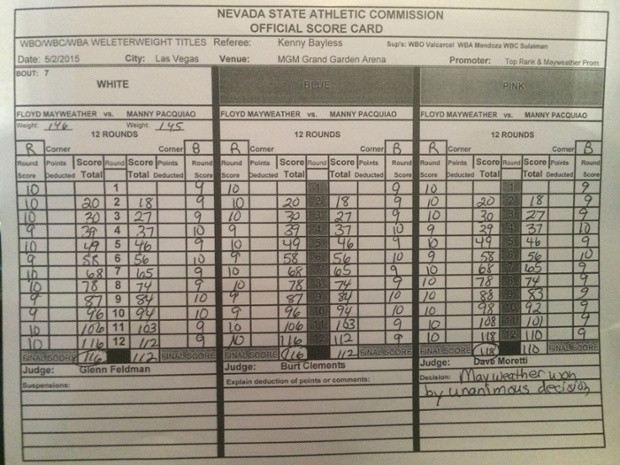 NEVADA STATE ATHLETIC COMMISSION
OFFICIAL SCORE CARD
WBO/WBC/WBA WELETERWEIGHT TITLES Referee: Kenny Bayless Sup's: WBO Valcarcel WBA Mendoza WBC Sulaiman
Date: 5/2/2015 City: Las Vegas Venue: MGM Grand Garden Arena Promoter: Top Rank & Mayweather Prom.
BOUT: 7
WHITE BLUE PINK
FLOYD MAYWEATHER vs. MANNY PACQUIAO FLOYD MAYWEATHER vs. MANNY PACQUIAO FLOYD MAYWEATHER vs. MANNY PACQUIAO
Weight: 146 Weight: 145
12 ROUNDS 12 ROUNDS 12 ROUNDS
R Corner Corner B R Corner Corner B R Corner Corner B
Round Points Score Round Score Points Round Round Points Score Round Score Points Round Round Points Score Round Score Points Round
Score Deducted Total Total Deducted Score Score Deducted Total Total Deducted Score Score Deducted Total Total Deducted Score
10 1 9 10 1 9 10 1 9
10 20 2 18 9 10 20 2 18 9 10 20 2 18 9
10 30 3 27 9 10 30 3 27 9 10 30 3 27 9
9 39 4 37 10 9 39 4 37 10 9 39 4 37 10
10 49 5 46 9 10 49 5 46 9 10 49 5 46 9
9 58 6 56 10 9 58 6 56 10 9 58 6 56 10
10 68 7 65 9 10 68 7 65 9 10 68 7 65 9
10 78 8 74 9 10 78 8 74 9 10 78 8 74 9
9 87 9 84 10 9 87 9 84 10 10 88 9 83 9
9 96 10 94 10 9 96 10 94 10 10 98 10 92 9
10 106 11 103 9 10 106 11 103 9 10 108 11 101 9
10 116 12 112 9 10 116 12 112 9 10 118 12 110 9
FINAL SCORE 116 112 FINAL SCORE FINAL SCORE 116 112 FINAL SCORE FINAL SCORE 118 110 FINAL SCORE
Judge: Glenn Feldman Judge: Burt Clements Judge: Dave Moretti
Suspensions: Explain deduction of points or comments: Decision: Mayweather won
by unanimous decision